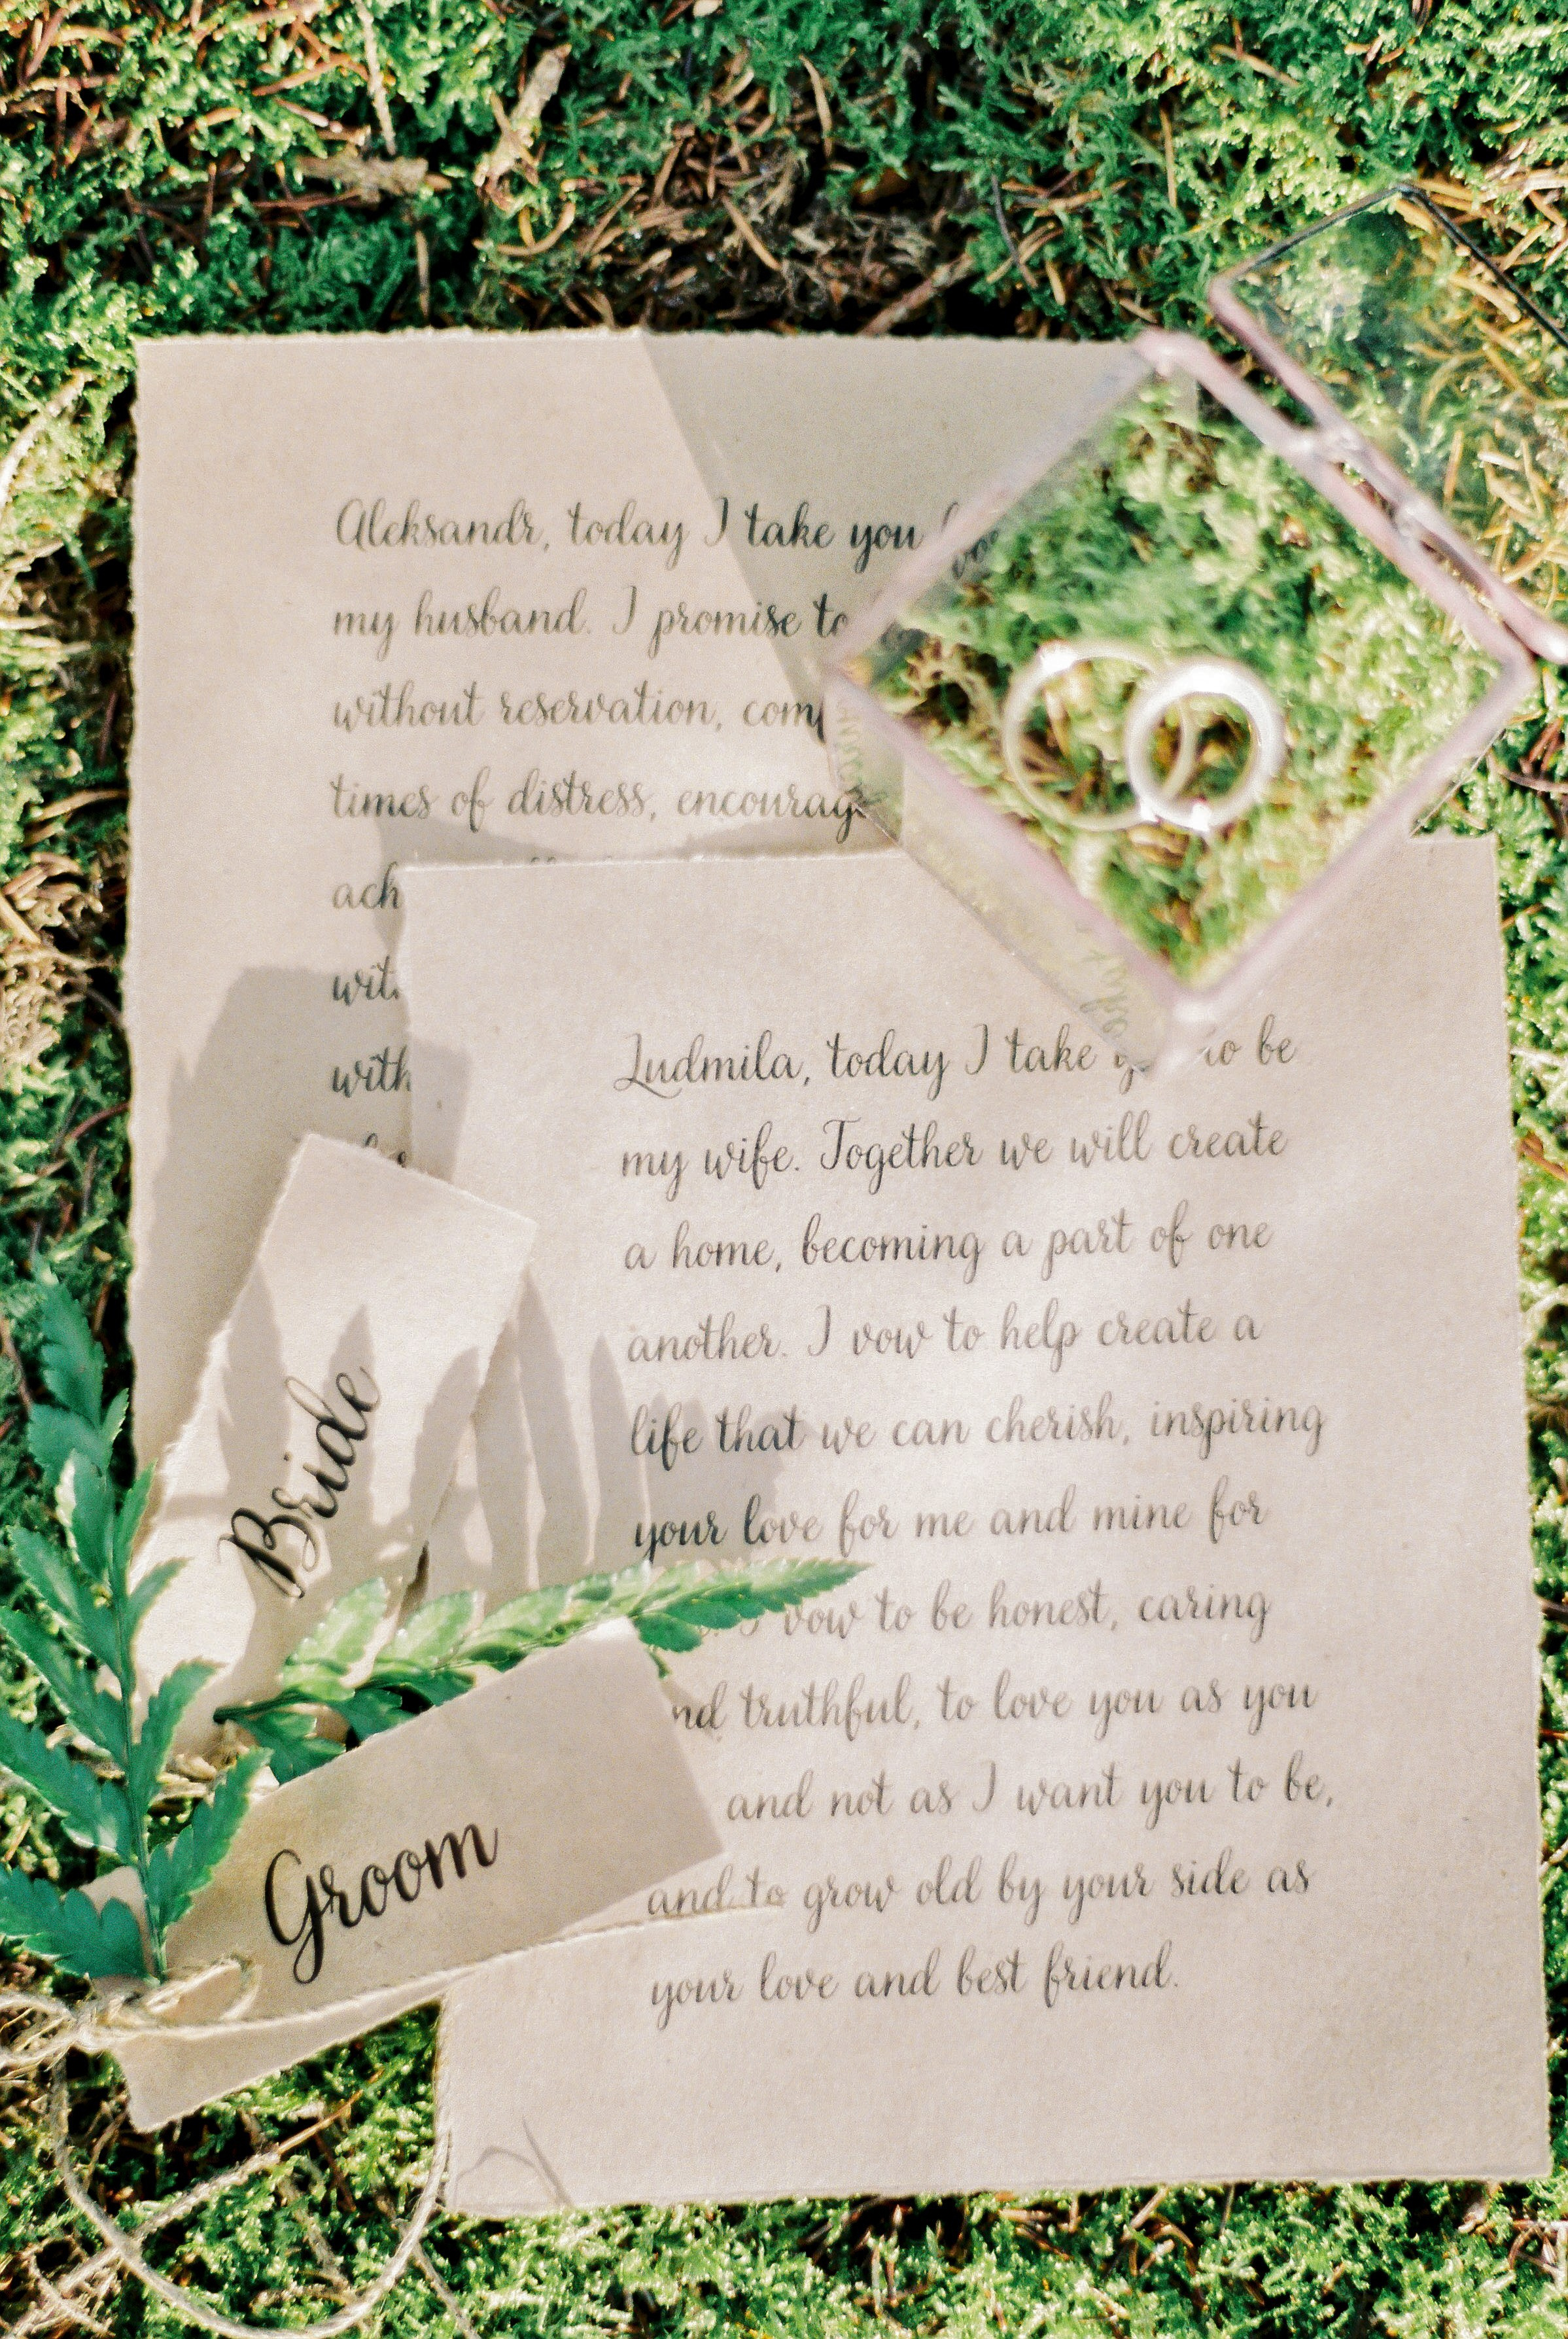 Aleksandr, today I take you
my husband. I promise to
without reservation,
times of distress, encourage
with
Ludmila, today I take to be
my wife. Together we will create
a home, becoming a part of one
another. I vow to help create a
life that we can cherish, inspiring
your love for me and mine for
I vow to be honest, caring
and truthful, to love you as you
and not as I want you to be,
and to grow old by your side as
your love and best friend.
Bride
Groom